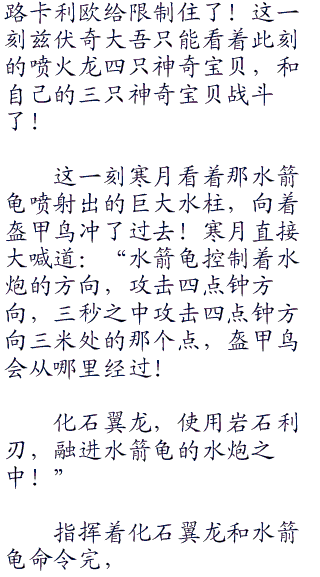 路卡利欧给限制住了！这一
刻兹伏奇大吾只能看着此刻
的喷火龙四只神奇宝贝，和
自己的三只神奇宝贝战斗
了！
这一刻寒月看着那水箭
龟喷射出的巨大水柱，向着
盔甲鸟冲了过去！寒月直接
大喊道：“水箭龟控制着水
炮的方向，攻击四点钟方
向，三秒之中攻击四点钟方
向三米处的那个点，盔甲鸟
会从哪里经过！
化石翼龙，使用岩石利
刃，融进水箭龟的水炮之
中！”
指挥着化石翼龙和水箭
龟命令完，